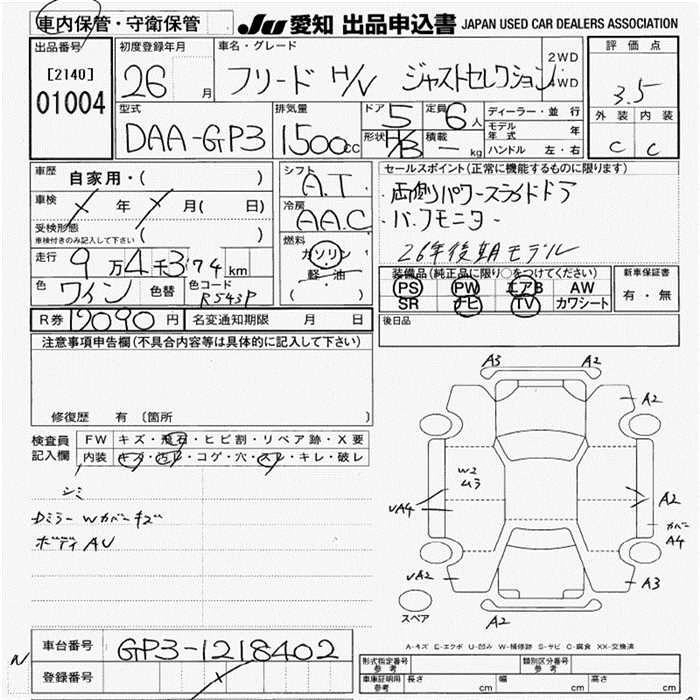 車内保管・守衛保管
JU 愛知 出品申込書 JAPAN USED CAR DEALERS ASSOCIATION
出品番号
[2140]
01004
初度登録年月
26 月
車名・グレード
フリード H/V ジャストセレクション
2WD
4WD
評価点
3.5
外装 内装
C C
型式
DAA-GP3
排気量
1500 cc
ドア 5
形状 H/B
定員 6 人
積載 — kg
ディーラー・並行
モデル年式 年
ハンドル 左・右
車歴
自家用・( )
車検 年 月( 日)
受検形態
車検付きのみ記入して下さい ( )
走行 9万4千374km
色 ワイン 色替 色コード R543P
シフト
A.T
冷房
AAC
燃料
ガソリン
軽・油
( )
セールスポイント(正常に機能するものに限ります)
・両側パワースライドドア
・バックモニター
26年後期モデル
装備品(純正品に限り○をつけてください)
PS PW エアB AW
SR ナビ TV カワシート
新車保証書
有・無
R券 12090円 名変通知期限 月 日
後日品
注意事項申告欄(不具合内容等は具体的に記入して下さい)
修復歴 有〔箇所
検査員
記入欄
FW キズ・飛石・ヒビ割・リペア跡・X要
内装 キズ・汚レ・コゲ・穴・スレ・キレ・破レ
シミ
Dミラー Wカバーキズ
ボディ AU
A3 A2
A2
W2
ムラ
UA4
A2
カバー
A4
UA2
A3
スペア
A2
A-キズ E-エクボ U-凹み W-補修跡 S-サビ C-腐食 XX-交換済
N
車台番号 GP3-1218402
登録番号
形式指定番号
参考
類別区分番号
参考
車庫証明用
参考
長さ cm 幅 cm 高さ cm